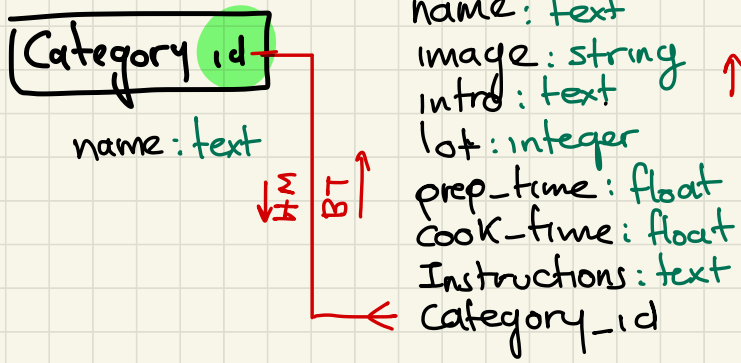 Category id
name: text
HM
BT
name: text
image: string
intro: text
lot: integer
prep_time: float
cook_time: float
Instructions: text
Category_id